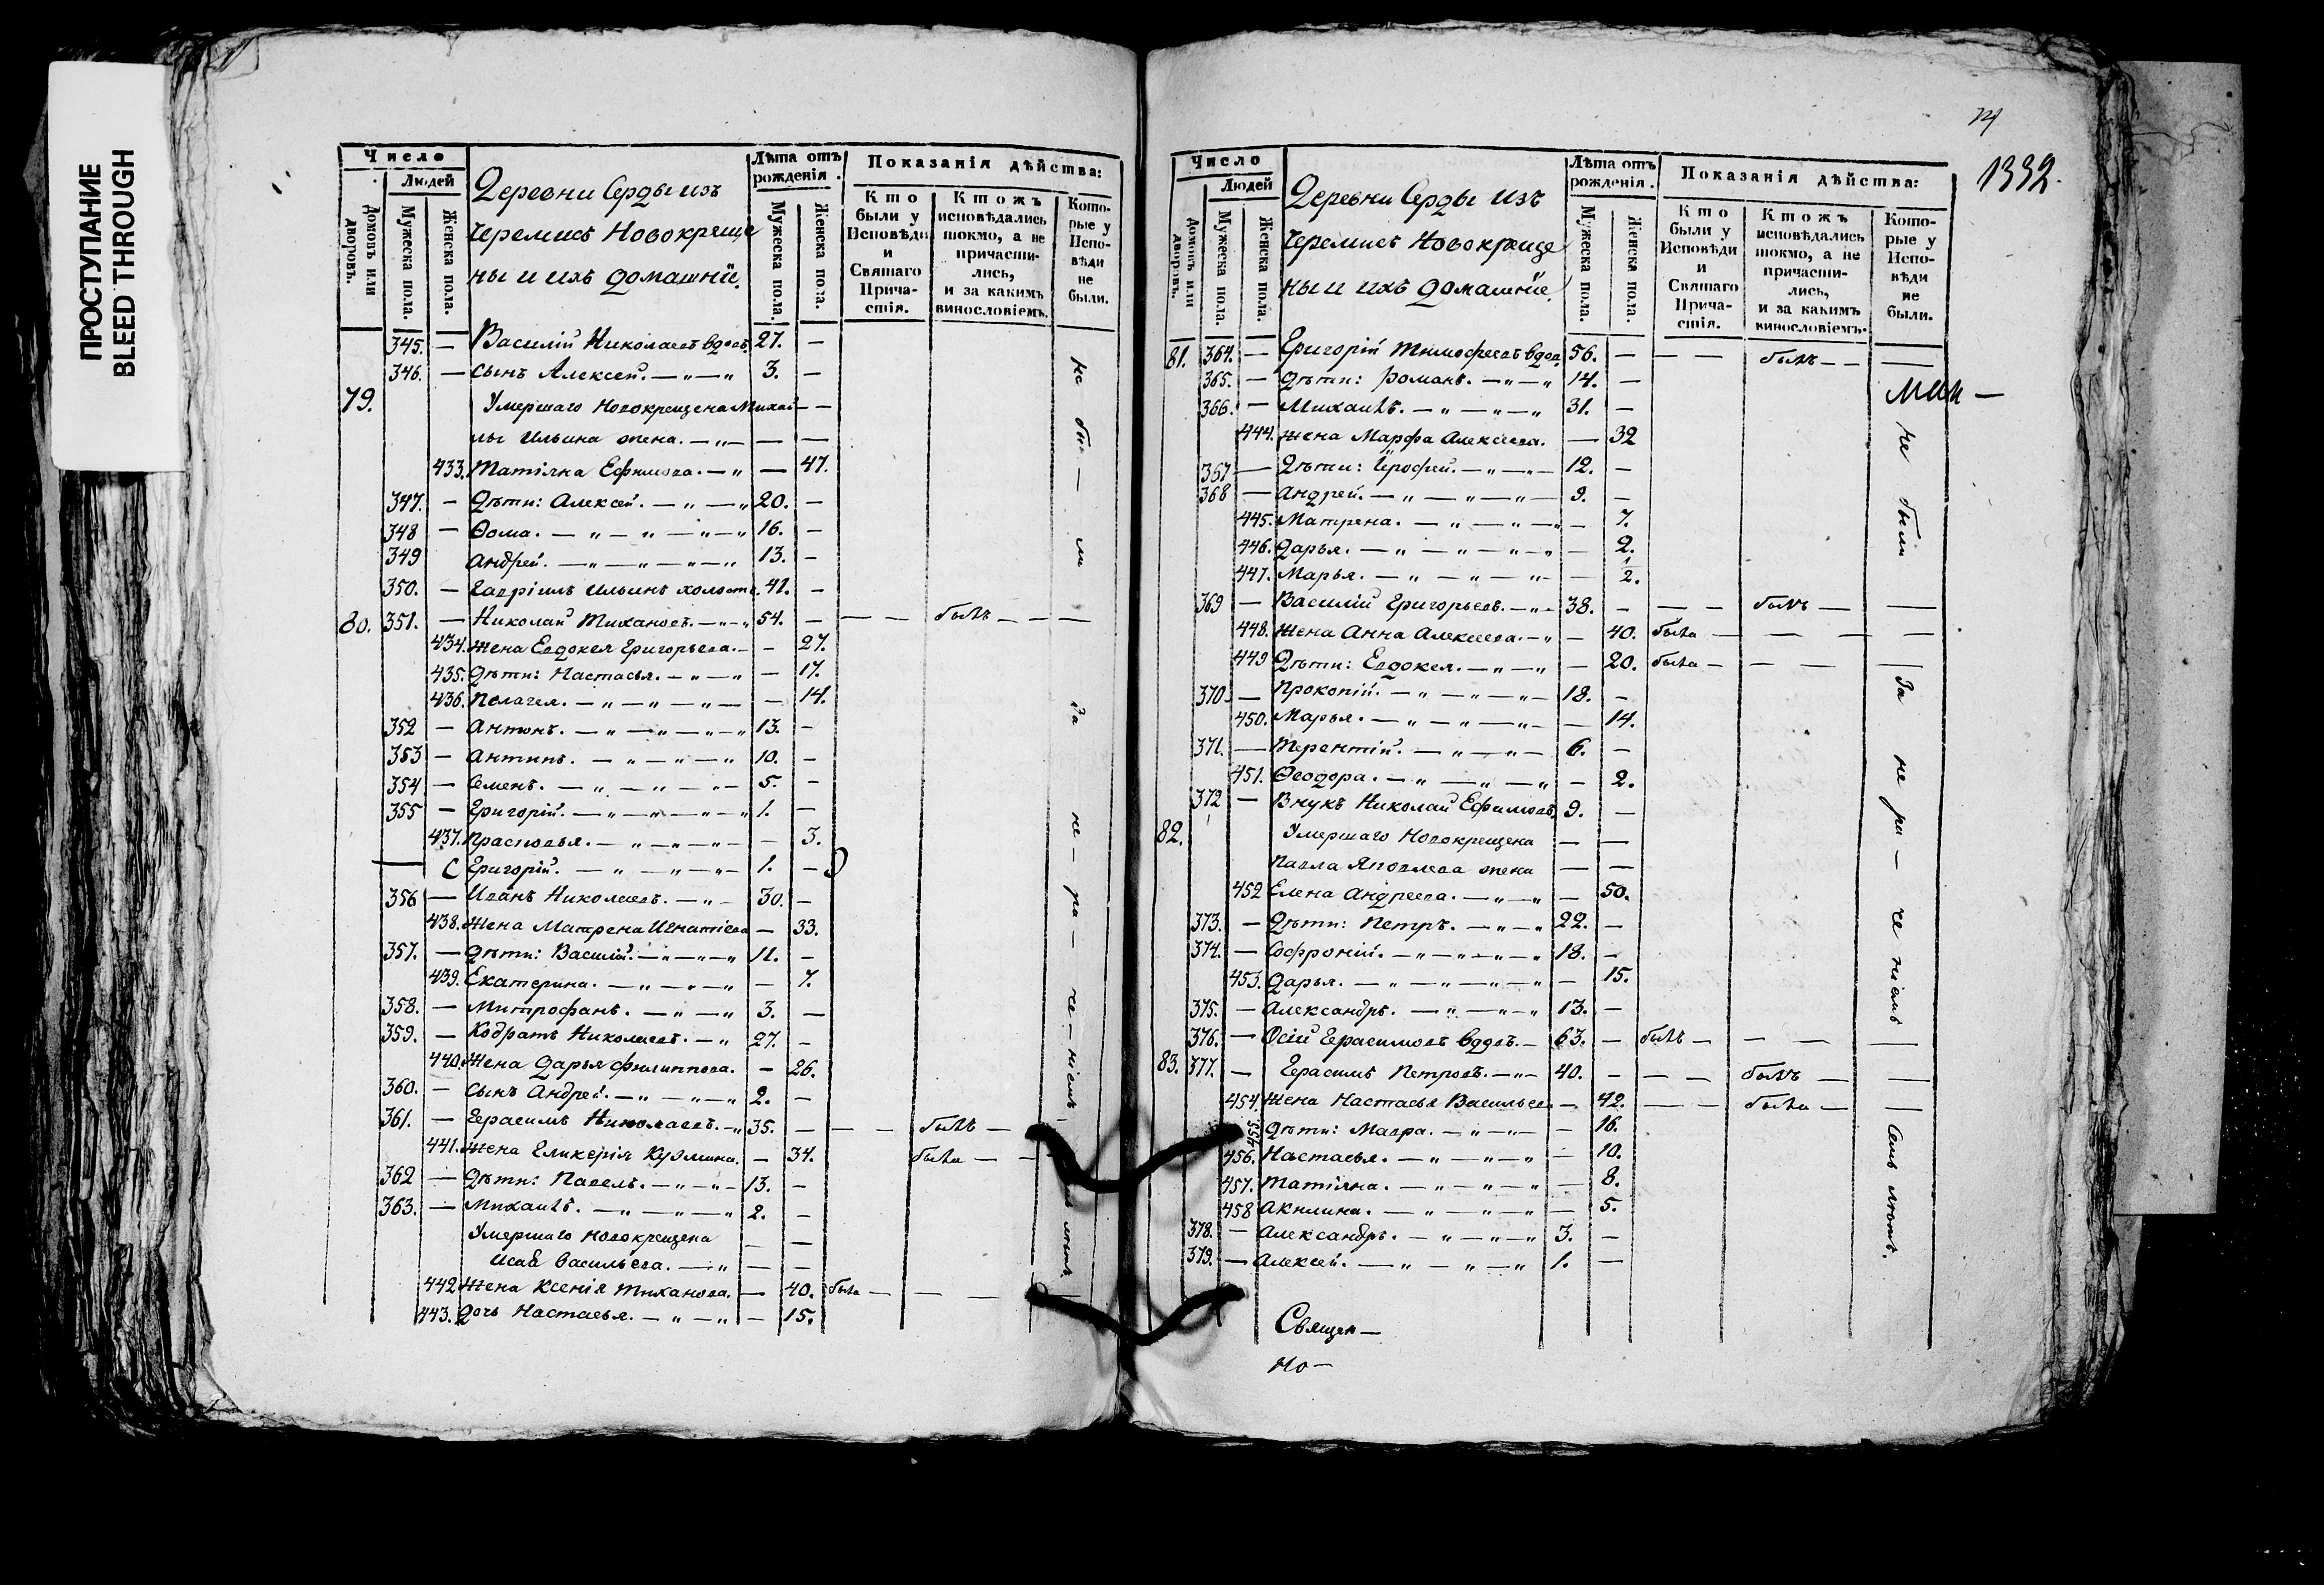 ПРОСТУПАНИЕ
BLEED THROUGH
Число
Людей
Домовъ или дворовъ.
Мужеска пола.
Женска пола.
Деревни Серды изъ
Черемисъ Новокреще
ны и ихъ домашнiе.
Лѣта отъ рожденiя.
Мужеска пола.
Женска пола.
Показанiя дѣйства:
Кто были у Исповѣди и Святаго Причастiя.
Ктожъ исповѣдались токмо, а не причастились, и за какимъ винословiемъ.
Которые у Исповѣди не были.
345. — Василiй Николаевъ вдовъ. 27. —
346. — Сынъ Алексей. — „ — „ 3. —
79. Умершаго Новокрещена Михай — —
лы Ильина жена. — „ — — —
433. Татiяна Ефимова. — „ — 47.
347. — Дѣти: Алексей. — „ — „ 20. —
348 — Ѳома. — „ — „ — „ — „ 16. —
349 Андрей. — „ — „ — „ — „ 13. —
350. — Гаврiилъ Ильинъ холостъ. 41. —
80. 351. — Николай Тихановъ. — „ — „ 54. — — — былъ — — —
434. Жена Евдокея Григорьева. — — 27.
435. Дѣти: Настасья. — „ — „ — 17.
436. Пелагея. — „ — „ — „ — — 14.
352 — Антонъ. — „ — „ — „ — „ 13. —
353 — Антипъ. — „ — „ — „ 10. —
354 — Семенъ. — „ — „ — „ — 5. —
355 — Григорiй. — „ — „ — „ — „ 1. —
437. Прасковья. — „ — „ — „ — — 3.
Григорiй. — „ — „ — „ — 1. —
356 — Иванъ Николаевъ. — „ — 30. —
438. Жена Матрена Игнатiева — 33.
357. — Дѣти: Василiй. — „ — „ — „ 11. —
439. Екатерина. — „ — „ — „ — 7.
358. — Митрофанъ. — „ — „ 3. —
359. — Кодратъ Николаевъ. — „ 27. —
440. Жена Дарья Филиппова. — 26.
360. — Сынъ Андрей. — „ — „ — „ 2. —
361. — Герасимъ Николаевъ. — „ 35. — — — былъ —
441. Жена Гликерiя Кузмина. — 34. была — —
362 — Дѣти: Павелъ. — „ — „ — 13. —
363. — Михаилъ. — „ — „ — „ 2. —
Умершаго Новокрещена — —
Исая Васильева. — „ — —
442 Жена Ксенiя Тиханова. — 40. была — — — —
443. Дочь Настасья. — „ — „ — 15.
не бы — ли за не — ра — че — нiемъ лѣтъ.
14
1332.
Число
Людей
Домовъ или дворовъ.
Мужеска пола.
Женска пола.
Деревни Серды изъ
Черемисъ Новокреще
ны и ихъ домашнiе.
Лѣта отъ рожденiя.
Мужеска пола.
Женска пола.
Показанiя дѣйства:
Кто были у Исповѣди и Святаго Причастiя.
Ктожъ исповѣдались токмо, а не причастились, и за какимъ винословiемъ.
Которые у Исповѣди не были.
81. 364. — Григорiй Тимофеевъ вдов. 56. — — — былъ — — —
365. — Дѣти: Романъ. — „ — „ 14. —
366. — Михаилъ. — „ — „ — „ 31. —
444. Жена Марфа Алексеева. — 32
357 — Дѣти: Ерофей. — „ — „ — 12. —
368 — Андрей. — „ — „ — „ — 9. —
445. Матрена. — „ — „ — „ — 7.
446. Дарья. — „ — „ — „ — „ — 2.
447. Марья. — „ — „ — „ — — 1/2.
369 — Василiй Григорьевъ. — „ — 38. — — — былъ — —
448. Жена Анна Алексеева. — „ — 40. была — — — —
449 Дѣти: Евдокея. — „ — „ — 20. была — — — —
370. — Прокопiй. — „ — „ — „ — 18. —
450. Марья. — „ — „ — „ — — 14.
371. — Терентiй. — „ — „ — 6. —
451. Ѳеодора. — „ — „ — „ — 2.
372 — Внукъ Николай Ефимовъ. 9. —
82. Умершаго Новокрещена — —
Павла Яковлева жена — —
452 Елена Андреева. — „ — „ — 50.
373. — Дѣти: Петръ. — „ — „ 22. —
374. — Софронiй. — „ — „ — „ — „ 18. —
453. Дарья. — „ — „ — „ — „ — 15.
375. — Александръ. — „ — „ — „ 13. —
376. — Осiй Герасимовъ вдовъ. — 63. — былъ — — — —
83. 377. — Герасимъ Петровъ. — „ — 40. — — — былъ — —
454. Жена Настасья Васильев. — 42. — — была — —
455. Дѣти: Мавра. — „ — „ — — 16.
456. Настасья. — „ — „ — „ — 10.
457. Татiяна. — „ — „ — „ — 8.
458 Акилина. — „ — „ — „ — 5.
378. — Александръ. — „ — „ — „ 3. —
379. — Алексей. — „ — „ — „ 1. —
не были За не ра — че нiемъ
Священ —
но —